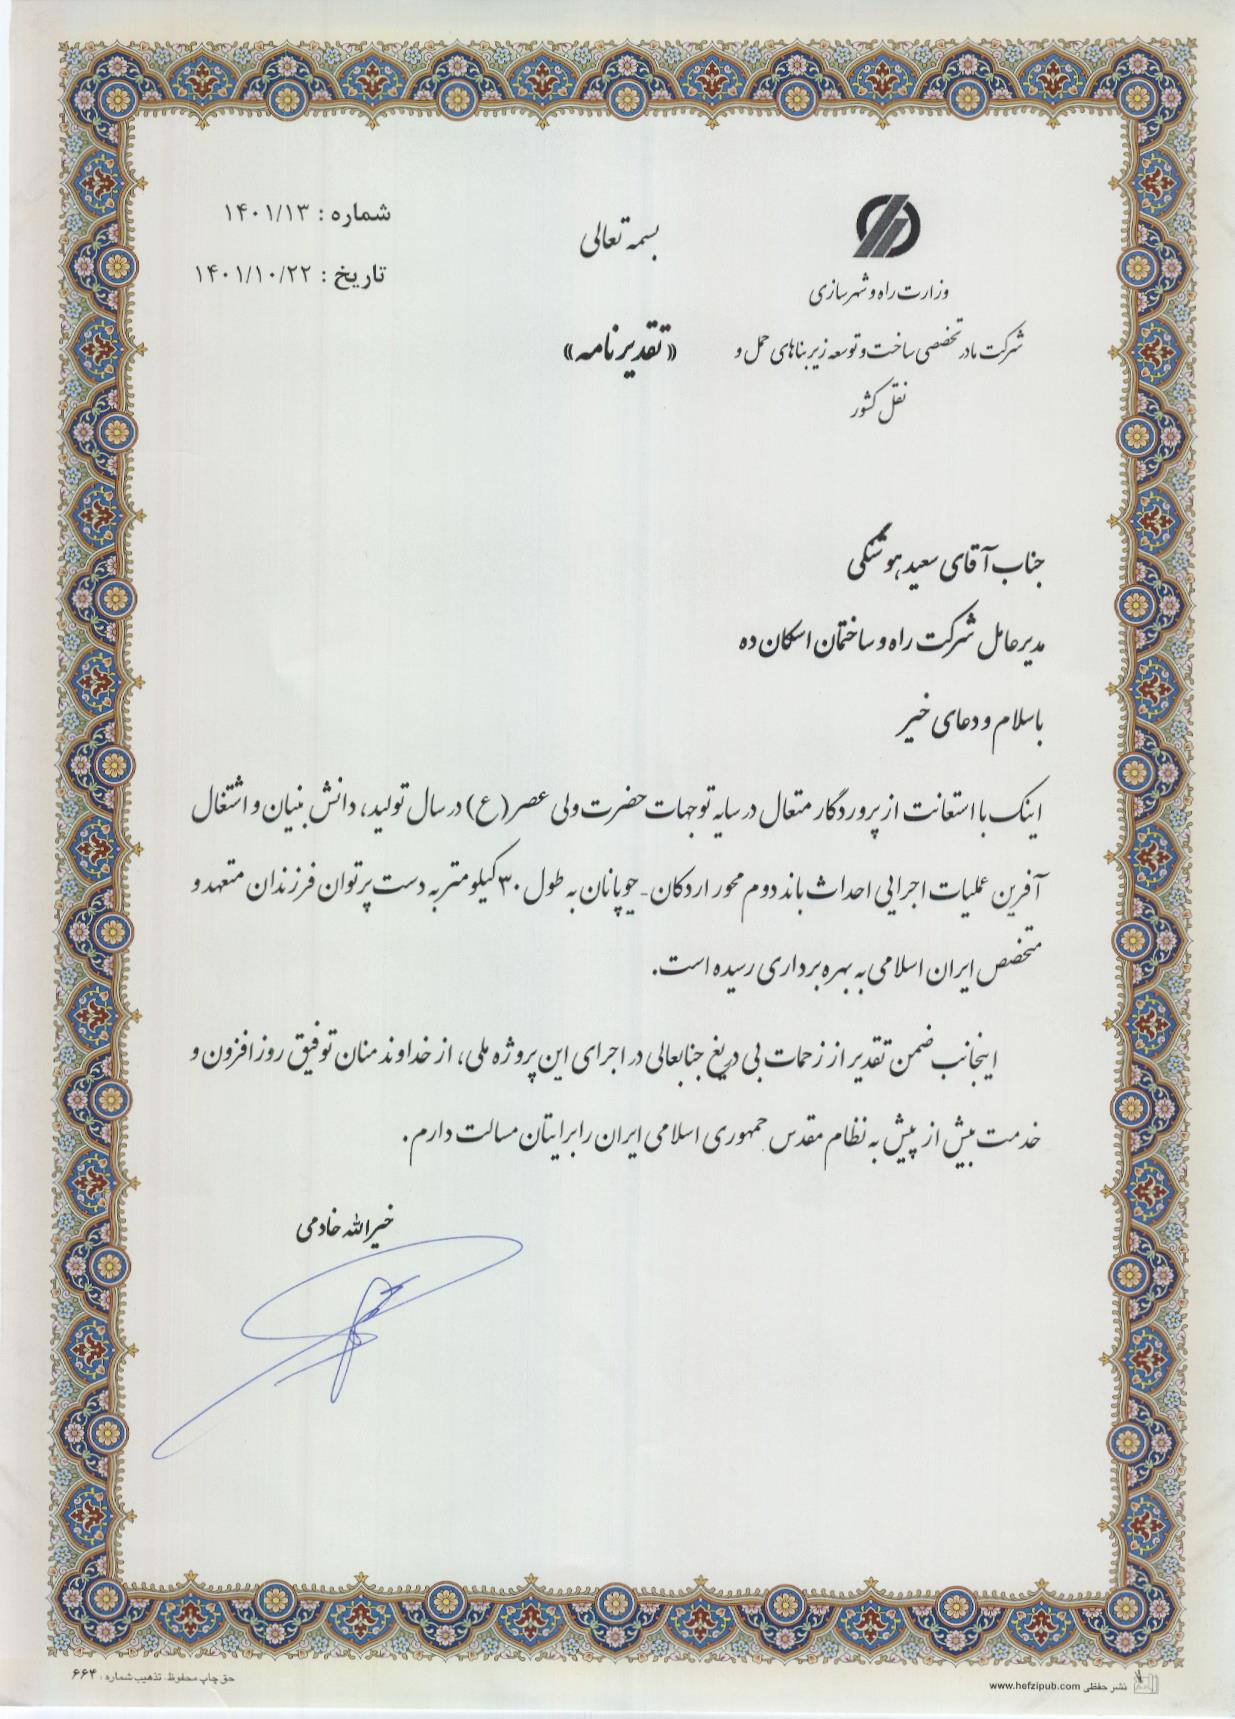 شماره : ۱۴۰۱/۱۳
تاریخ : ۱۴۰۱/۱۰/۲۲
بسمه تعالی
«تقدیرنامه»
وزارت راه و شهرسازی
شرکت مادر تخصصی ساخت و توسعه زیربناهای حمل و
نقل کشور
جناب آقای سعید هوشنگی
مدیرعامل شرکت راه و ساختمان اسکان ده
باسلام و دعای خیر
اینک با استعانت از پروردگار متعال در سایه توجهات حضرت ولی عصر(ع) در سال تولید، دانش بنیان و اشتغال
آفرین عملیات اجرایی احداث باند دوم محور اردکان - چوپانان به طول ۳۰ کیلومتر به دست پرتوان فرزندان متعهد و
متخصص ایران اسلامی به بهره برداری رسیده است.
اینجانب ضمن تقدیر از زحمات بی دریغ جنابعالی در اجرای این پروژه ملی، از خداوند منان توفیق روزافزون و
خدمت بیش از پیش به نظام مقدس جمهوری اسلامی ایران را برایتان مسالت دارم.
خیرالله خادمی
نشر حفظی www.hefzipub.com
حق چاپ محفوظ. تذهیب شماره : ۶۶۴